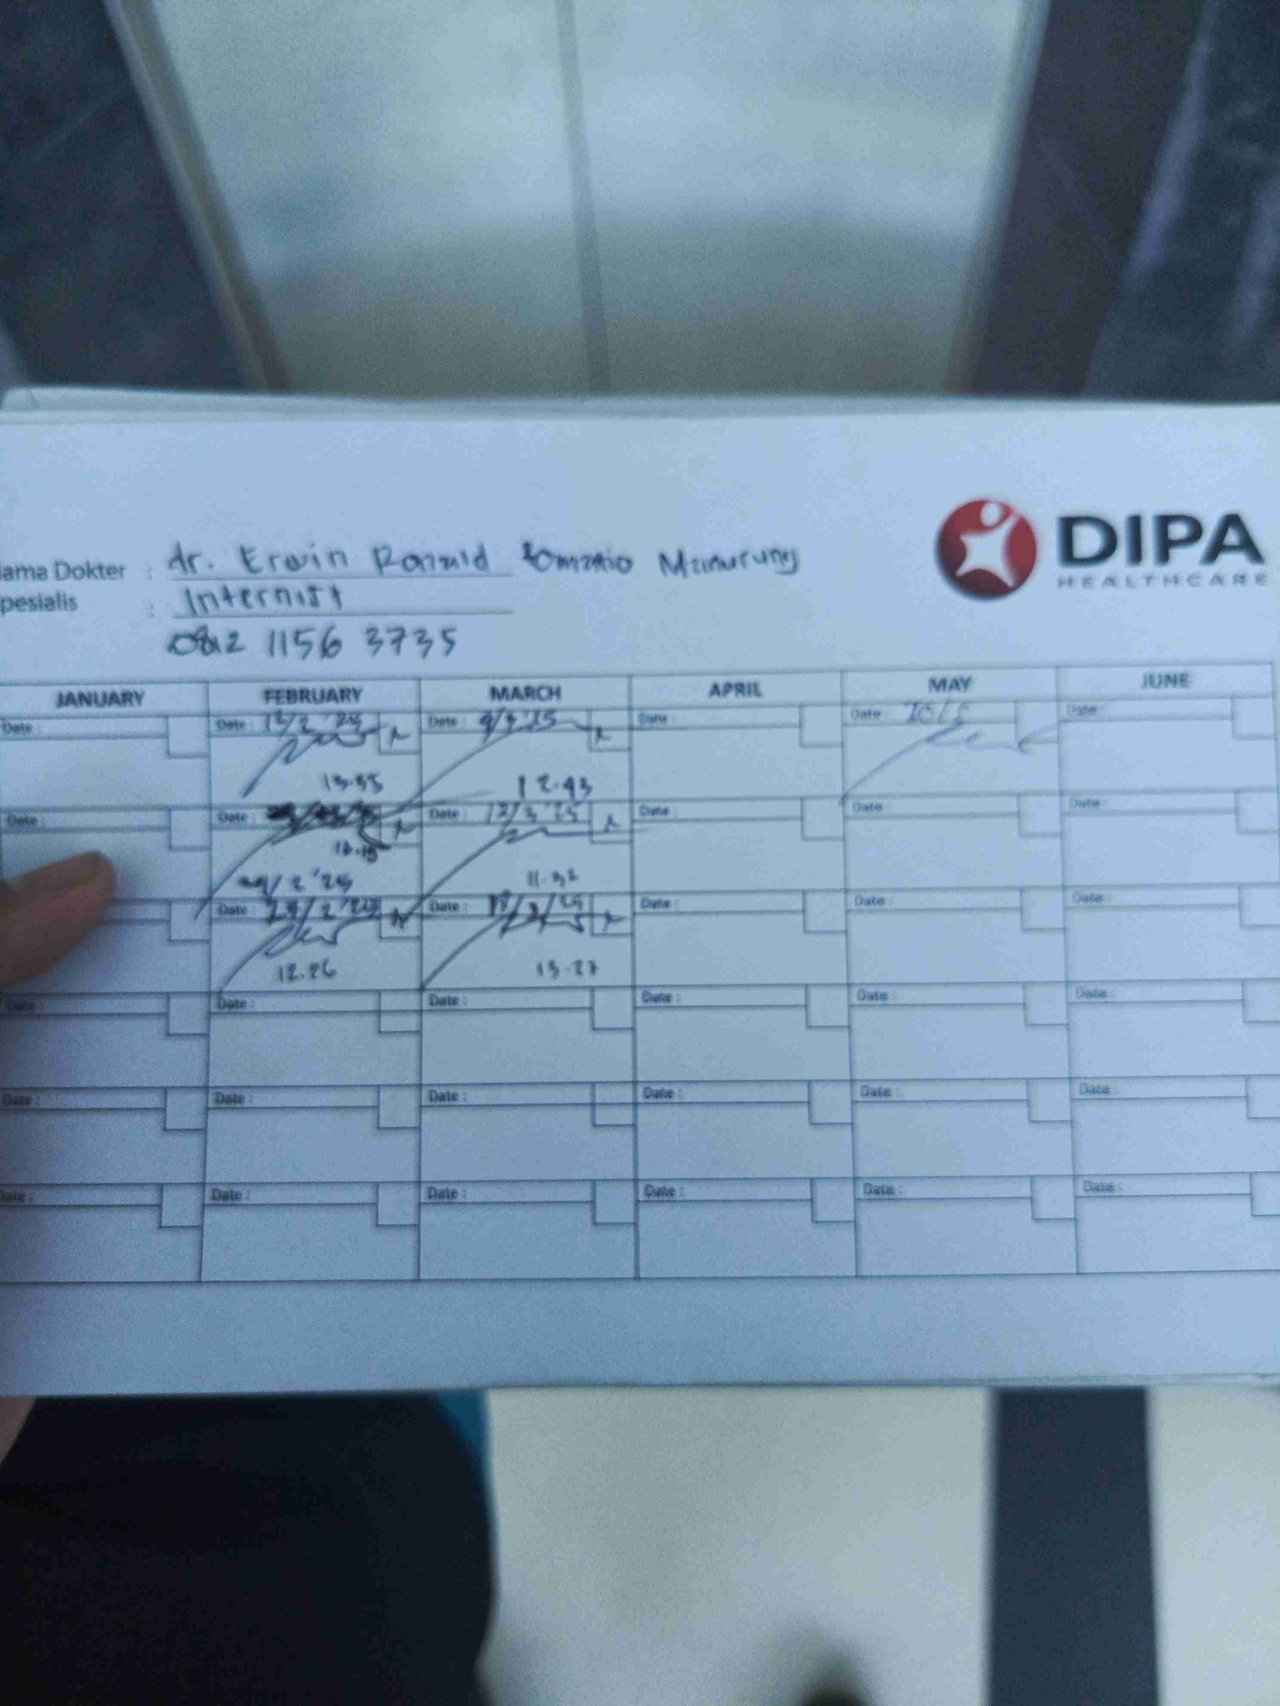 DIPA
HEALTHCARE
ama Dokter : dr. Erwin Ronald Manurung
pesialis : Internist
0812 1156 3735
JANUARY FEBRUARY MARCH APRIL MAY JUNE
Date : Date : 12/2 '25 Date : 4/3 '25 Date : Date : Date :
13.35 12.43
Date : Date : Date : 12/3 '25 Date : Date : Date :
11.32
/2 '25
Date : Date : Date : Date : Date :
12.26 13.27
Date : Date : Date : Date : Date : Date :
Date : Date : Date : Date : Date : Date :
Date : Date : Date : Date : Date : Date :